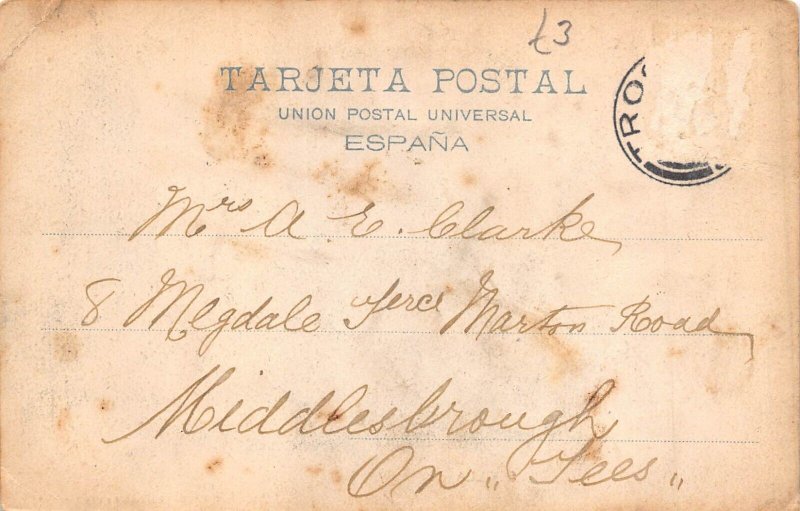 £3
TARJETA POSTAL
UNION POSTAL UNIVERSAL
ESPAÑA
TRO
Mrs A E. Clarke
8 Megdale Terce Marton Road
Middlesbrough
On "Tees"